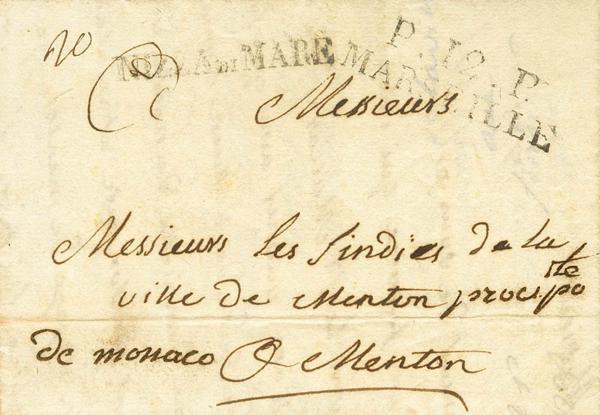 20
NIZZA DI MARE
P. 12. P.
MARSEILLE
Messieurs
Messieurs les sindics de la
ville de Menton
de monaco @ Menton